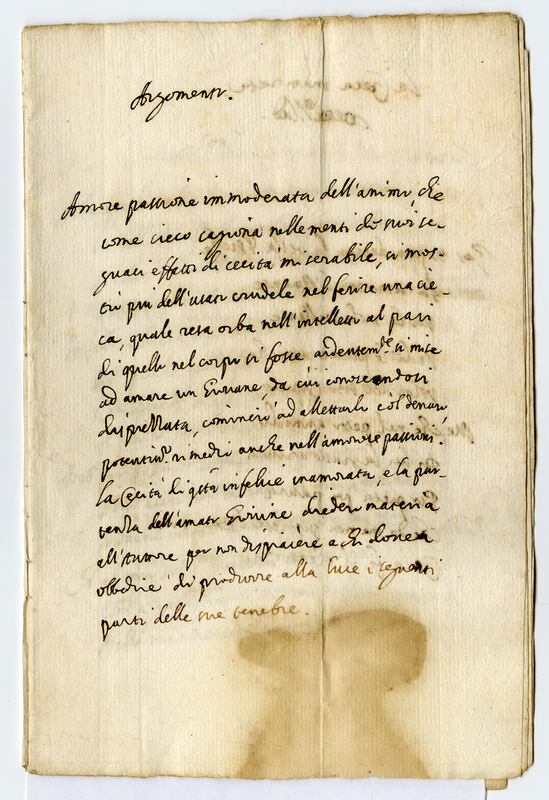 Argomento.
Amore passione immoderata dell'animo, che
come cieco cagiona nelle menti de suoi se-
guaci effetti di cecità miserabile, si mos-
trò più dell'usato crudele nel ferire una cie-
ca, quale resa orba nell'intelletto al pari
di quello nel corpo si fosse ardentem.te si mise
ad amare un Giovane, da cui conoscendosi
disprezzata, cominciò ad allettarlo col denaro,
potentiss.o rimedio anche nell'amorose passioni.
La Cecità di q.sta infelice inamorata, e la par-
tenza dell'amato Giovine diedero materia
all'Autore per non dispiacere a chi doveva
obbedire di produrre alla luce i seguenti
parti delle sue tenebre.